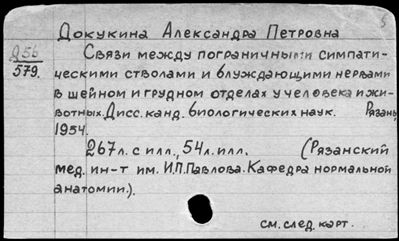 Докукина Александра Петровна
Связи между пограничными симпати-
579.
ческими стволами и блуждающими нервами
в шейном и грудном отделах у человека и жи-
вотных. Дисс. канд. биологических наук. Рязань
1954.
267 л. с илл., 54 л. илл. (Рязанский
мед. ин-т им. И.П. Павлова. Кафедра нормальной
анатомии.).
см. след. карт.